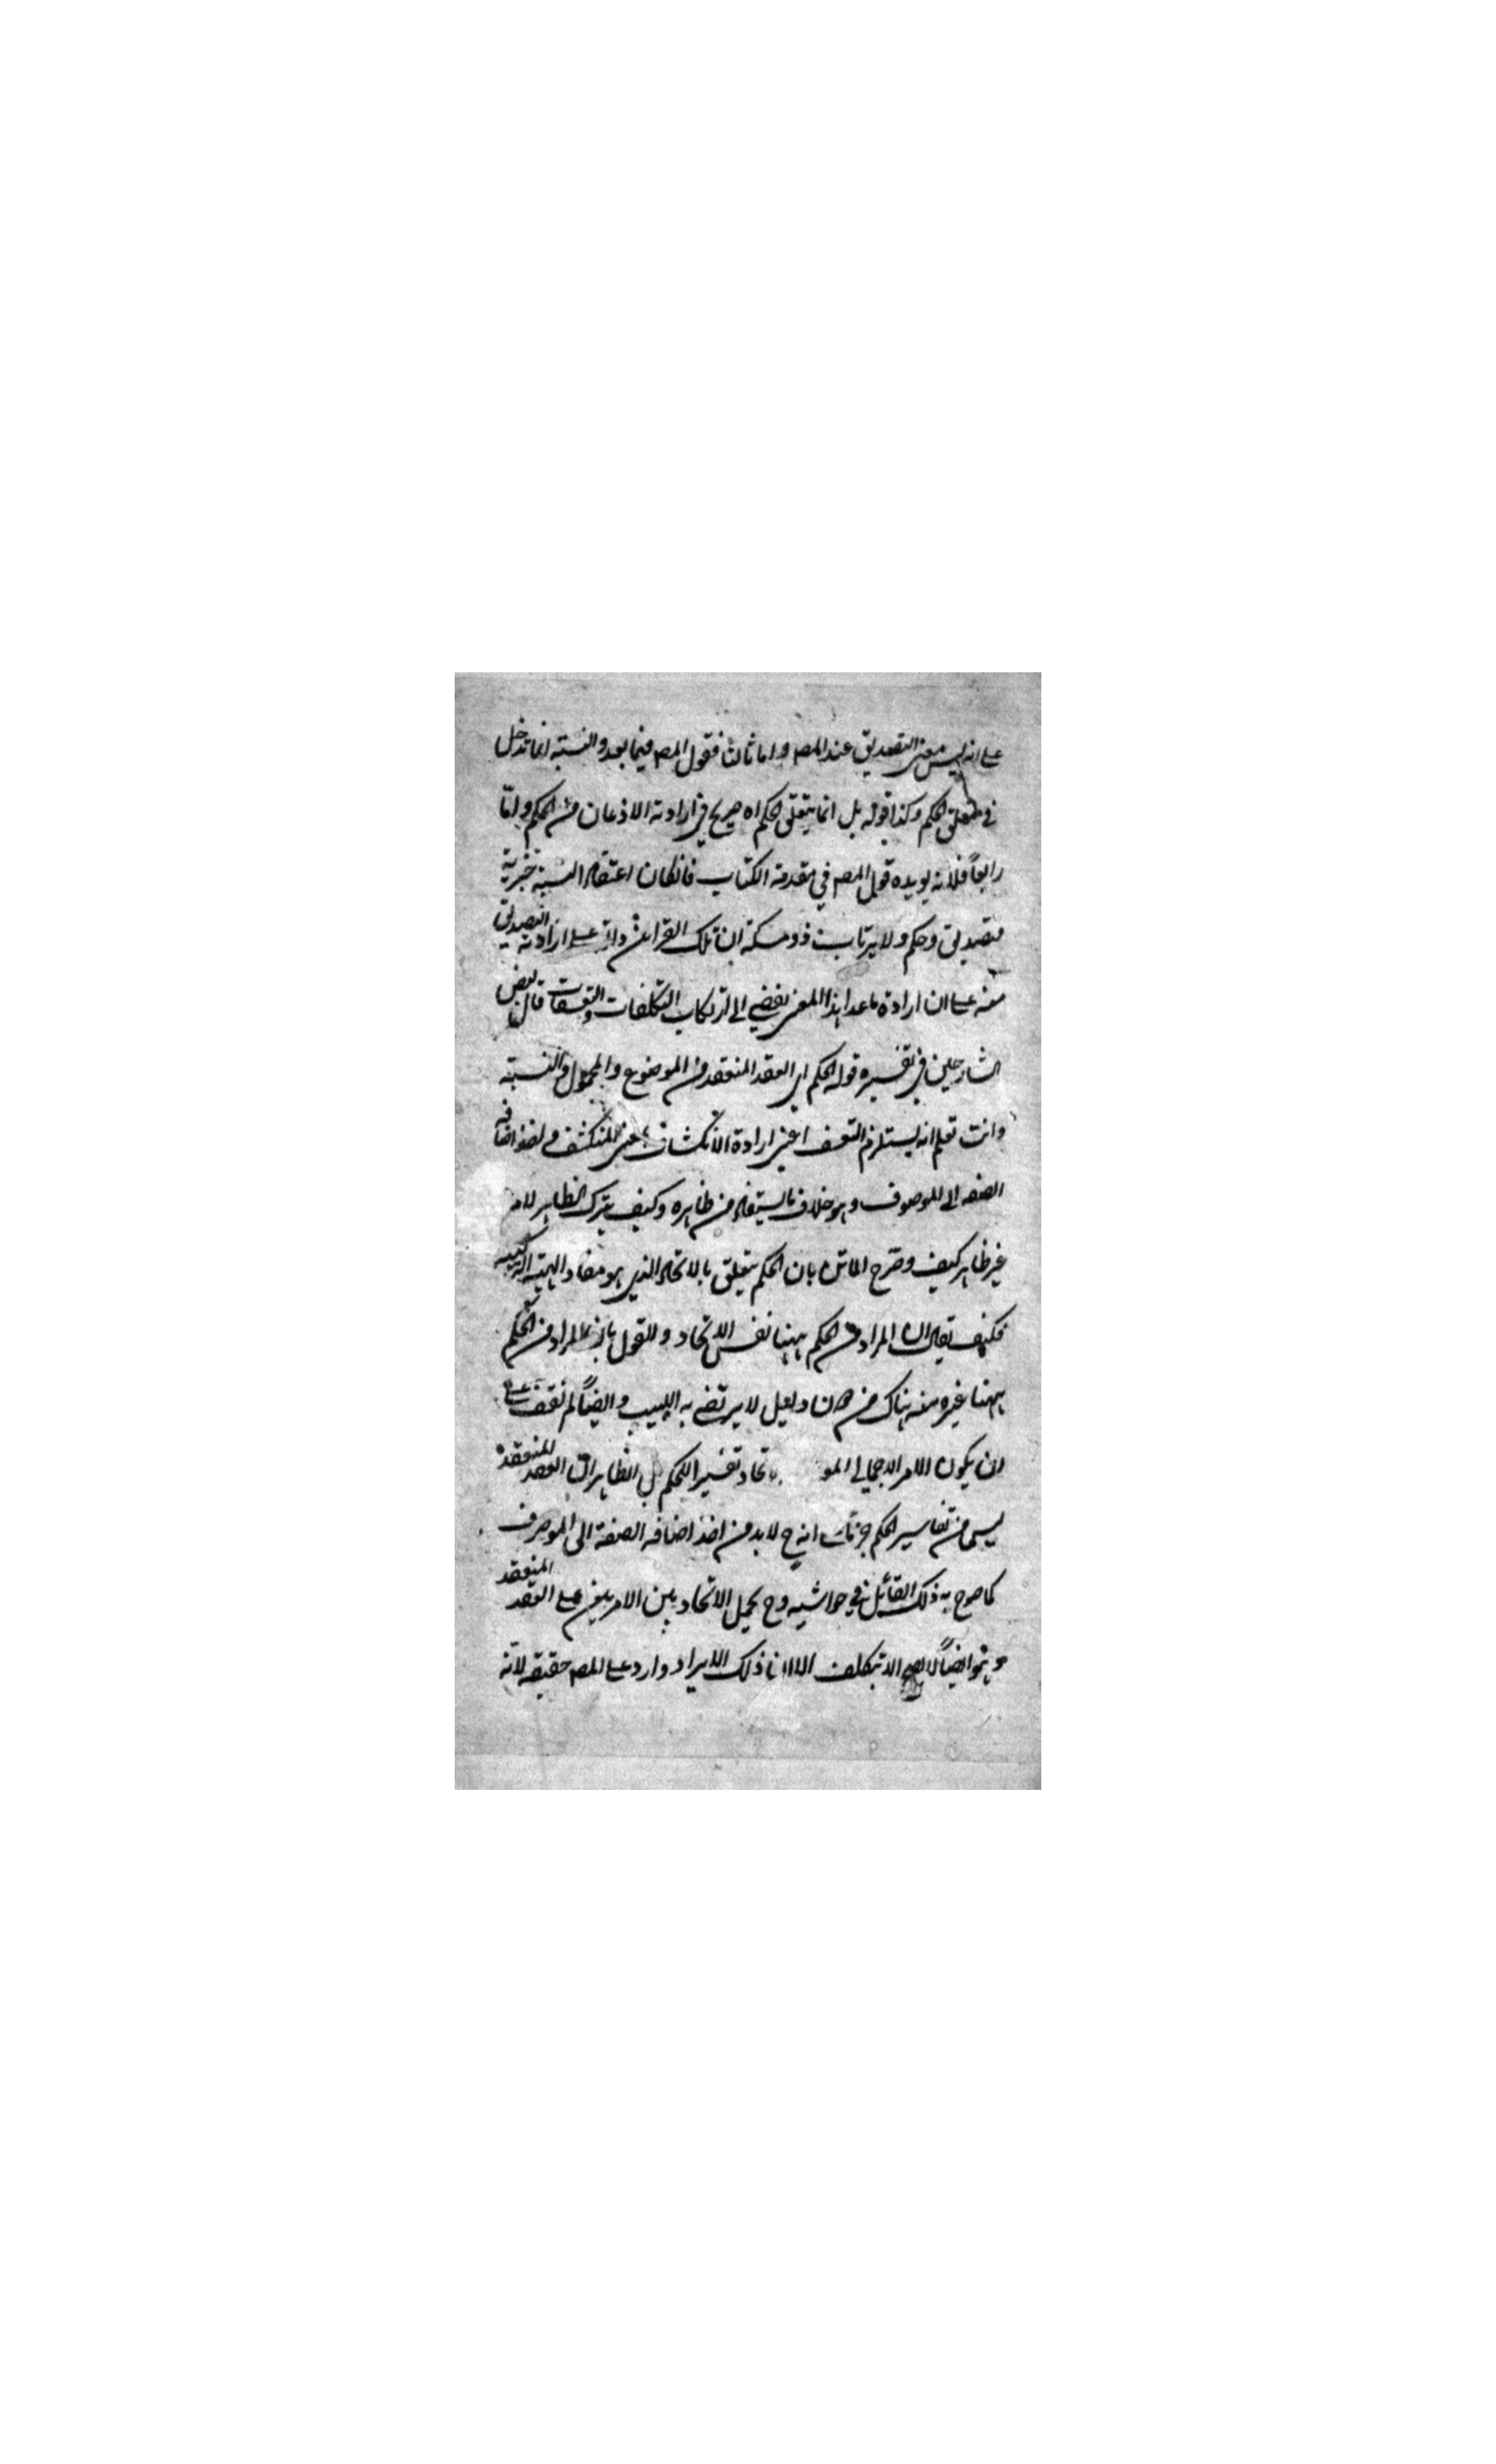 على انه ليس معنى التصديق عند المصه واما ثالثا فقول المصه فيما بعد والنسبة انما تدخل
في متعلق الحكم وكذا قوله بل انما يتعلق الحكم اه صريح في ارادته الاذعان من الحكم واما
رابعاً فلانه يويده قول المصه في مقدمة الكتاب فانكان اعتقادا لنسبة خبرية
فتصديق وحكم ولا يرتاب ذو مسكة ان تلك القرائن دالة على ارادته التصديق
منه على ان ارادة ماعدا هذا المعنى يفضي الى ارتكاب التكلفات والتعسفات قال بعض
الشارحين في تفسيره قوله الحكم اي العقد المنعقد من الموضوع والمحمول والنسبة
وانت تعلم انه يستلزم التعسف اعنى ارادة الانكشاف بمعنى المنكشف واخذ اضافة
الصفة الى الموصوف وهو خلاف ما يستفاد من ظاهره وكيف يترك الظاهر لامر
غير ظاهر كيف وصرح الماتن بان الحكم يتعلق بالاتحاد الذي هو مفاد الهيئة التركيبية
فكيف يقال ان المراد من الحكم ههنا نفس الاتحاد والقول بان المراد من الحكم
ههنا غيره منه هناك من دليل لا يرتضى به اللبيب وايضاً لم نقف على
ان يكون الامر الاجمالي تفسير الحكم بل الظاهر ان العقد المنعقد
ليس من تفاسير الحكم انه ح لابد من اخذ اضافه الصفة الى الموصوف
كما صرح به ذلك القائل في حواشيه وح يحمل الاتحاد بين الامرين على العقد المنعقد
وهو ايضاً لا يصح الا بتكلف ذلك الايراد وارد على المصه حقيقة لانه